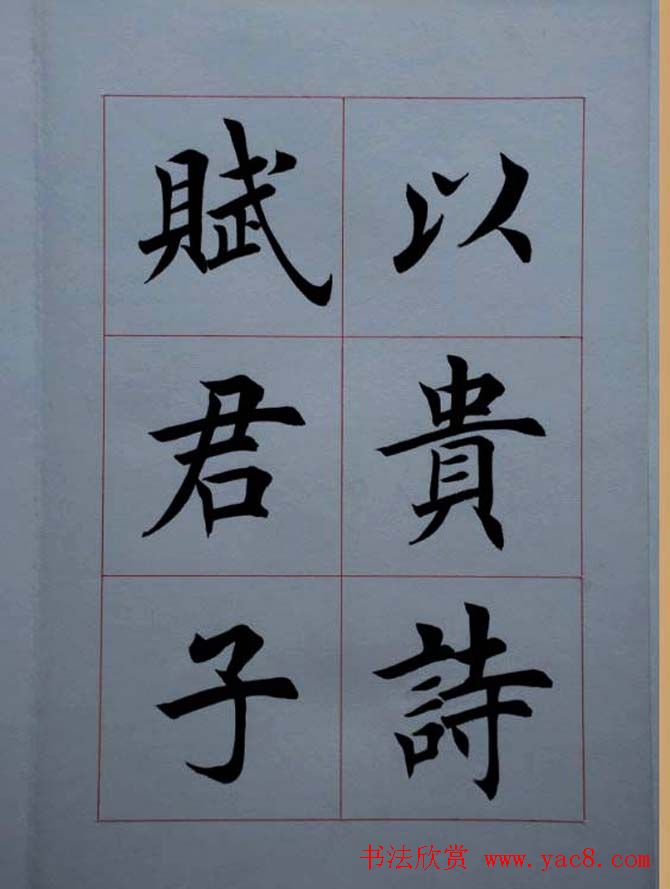 以貴詩
賦君子
书法欣赏 www.yac8.com